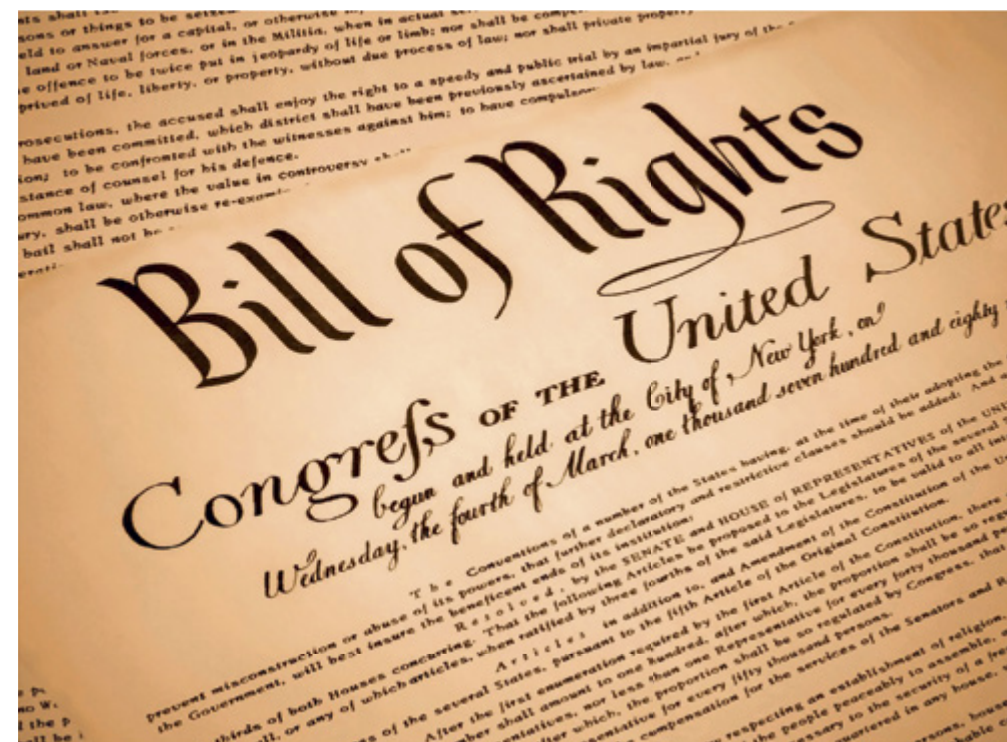 nts shall
sons or things to be seized
eld to answer for a capital, or otherwise
land or Naval forces, or in the Militia, when in actual
e offence to be twice put in jeopardy of life or limb; nor shall be
prived of life, liberty, or property, without due process of law; nor shall private property
rosecutions, the accused shall enjoy the right to a speedy and public trial by an impartial jury of the
have been committed, which district shall have been previously ascertained by law,
ion; to be confronted with the witnesses against him; to have compulsory
stance of counsel for his defence.
ommon law, where the value in controversy shall
ury, shall be otherwise
bail shall not be
Bill of Rights
Congreſs OF THE United States
begun and held at the City of New York, on
Wednesday, the fourth of March, one thousand seven hundred and eighty
The Conventions of a number of the States having, at the time of their adopting the
misconstruction or abuse of its powers, that further declaratory and restrictive clauses should be added: And
prevent
the Government, will best insure the beneficent ends of its institution;
Resolved, by the SENATE and HOUSE of REPRESENTATIVES of the
thirds of both Houses concurring. That the following Articles be proposed to the Legislatures of the several
all, or any of which articles, when ratified by three fourths of the said Legislatures, to be valid to all
Articles in addition to, and Amendment of the Constitution of the
of the several States, pursuant to the fifth Article of the Original Constitution.
After the first enumeration required by the first Article of the Constitution, there
shall amount to one hundred, after which, the proportion shall be so
entatives, nor less than one Representative for every forty thousand
after which, the proportion shall be so regulated by Congress, that
esentative for every fifty thousand persons.
compensation for the services of the Senators and
respecting an establishment of religion,
the people peaceably to assemble,
necessary to the security of a
quartered in any house,